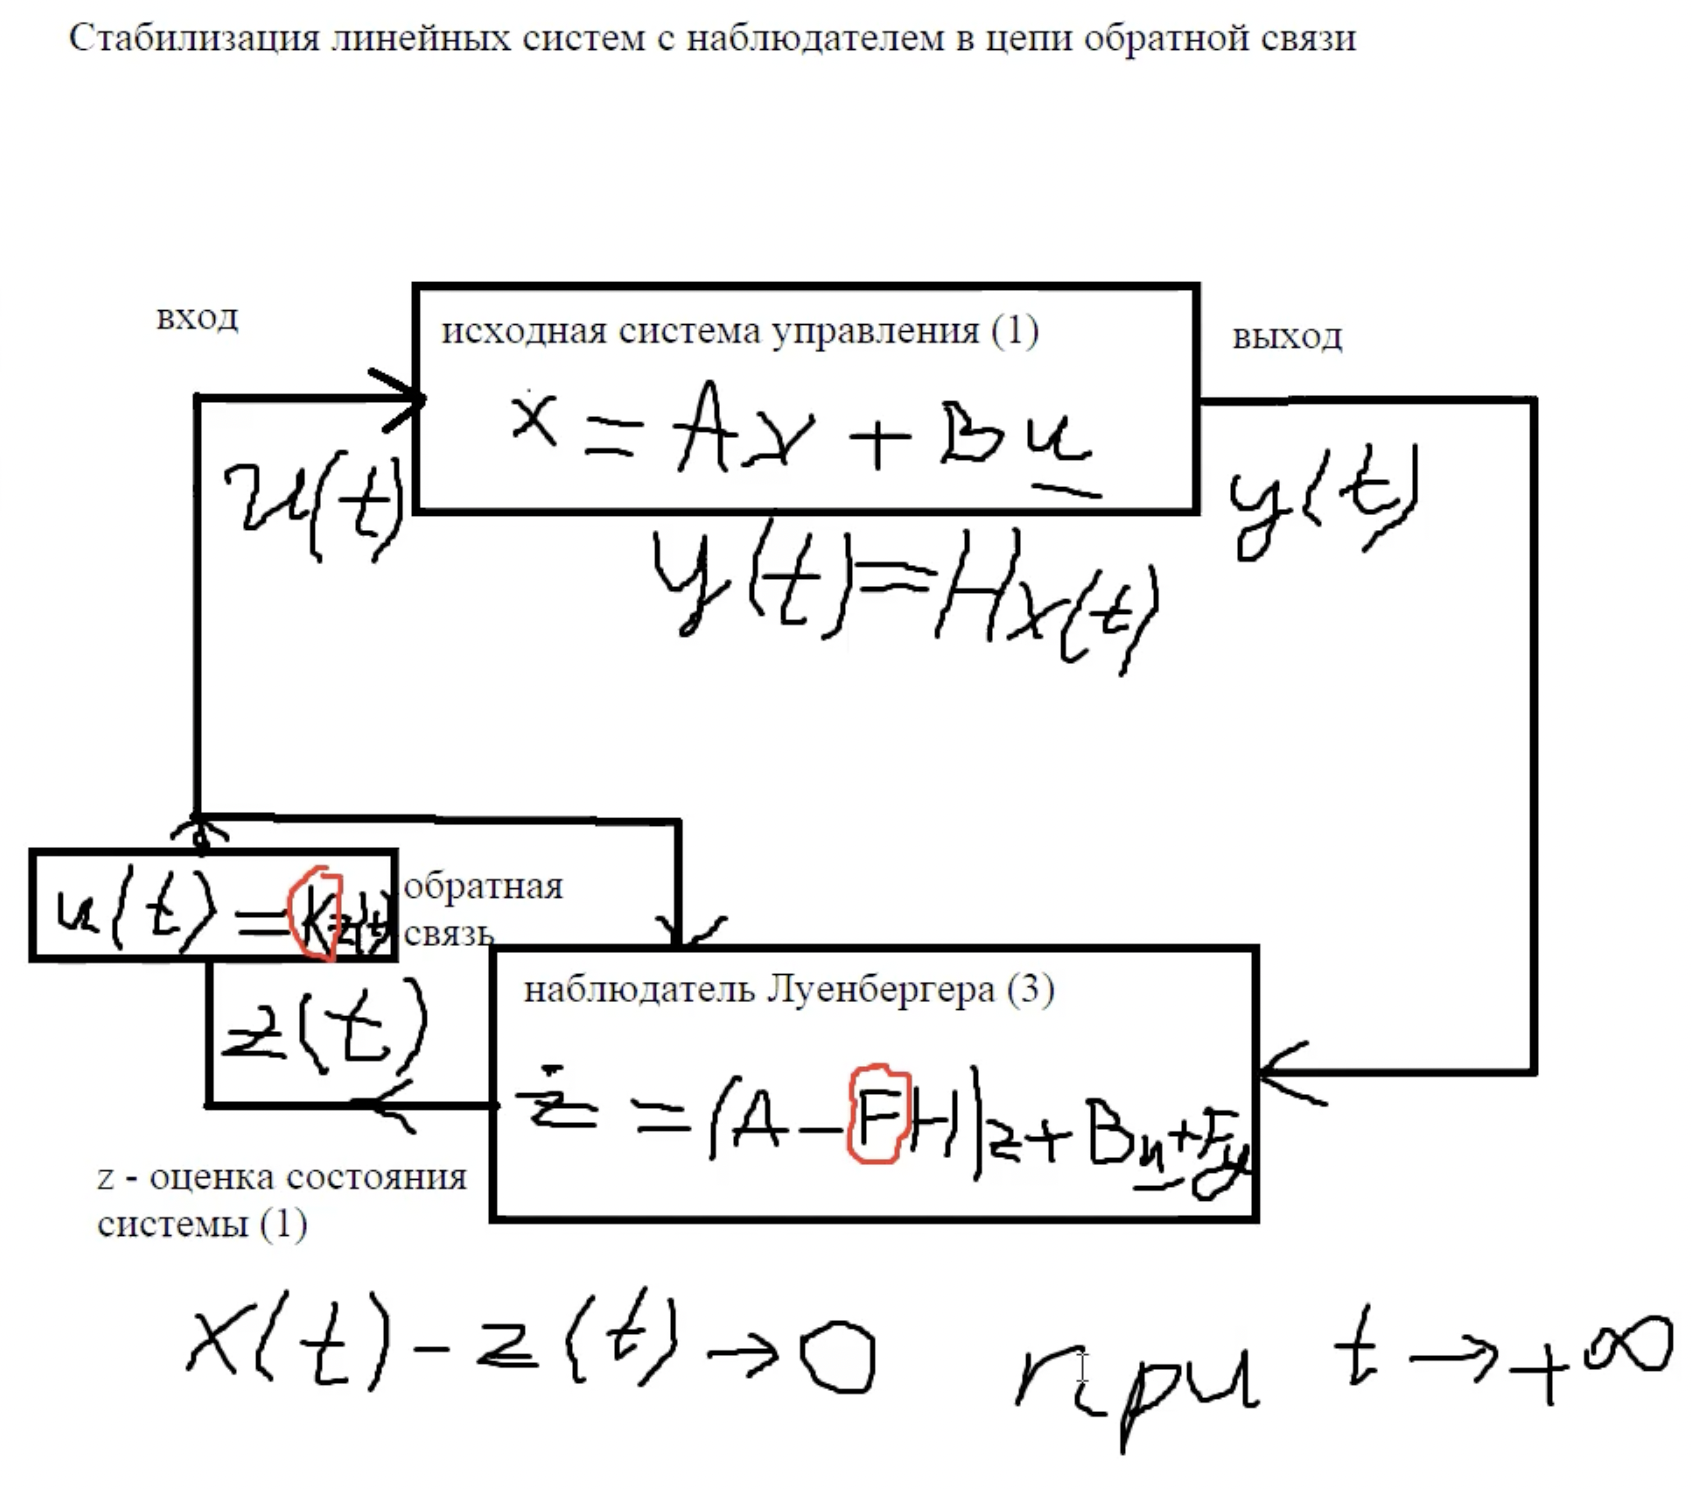 Стабилизация линейных систем с наблюдателем в цепи обратной связи
вход
исходная система управления (1)
выход
ẋ = Ax + Bu
u(t)
y(t)
y(t) = Hx(t)
u(t) = Kz(t)
обратная
связь
наблюдатель Луенбергера (3)
z(t)
ż = (A - FH)z + Bu + Fy
z - оценка состояния
системы (1)
x(t) - z(t) → 0 при t → +∞